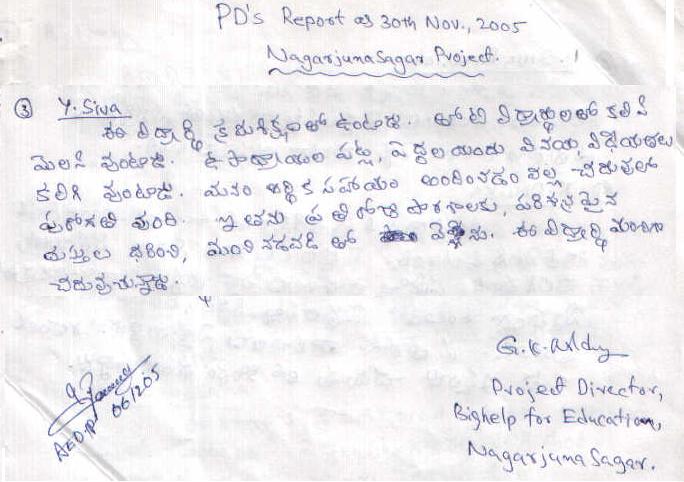 PD's Report as 30th Nov., 2005
NagarjunaSagar Project.
③ Y. Siva
ఈ విద్యార్థి క్రమశిక్షణతో ఉంటాడు. తోటి విద్యార్థులతో కలిసి
మెలసి వుంటాడు. ఉపాధ్యాయుల పట్ల, పెద్దల యందు వినయ, విధేయతలు
కలిగి వుంటాడు. మనం ఆర్థిక సహాయం అందించడం వల్ల చదువులో
పురోగతి వుంది. ఇతను ప్రతిరోజు పాఠశాలకు, పరిశుభ్రమైన
దుస్తులు ధరించి, మంచి నడవడితో వెళ్తాడు. ఈ విద్యార్థి మంచిగా
చదువుచున్నాడు.
G.K. Reddy
Project Director,
Bighelp for Education,
NagarjunaSagar.
06/12/05